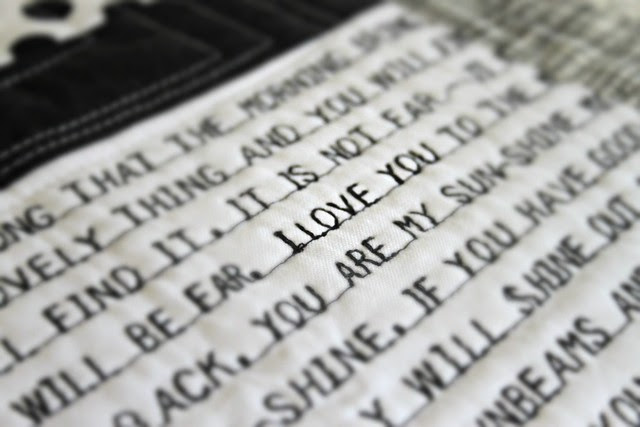 ONG THAT THE MORNING SHINE
OVELY THING AND YOU WILL FIN
LL FIND IT, IT IS NOT FAR - IT
WILL BE EAR, I LOVE YOU TO THE
BACK, YOU ARE MY SUN-SHINE M
-SHINE, IF YOU HAVE GOOD
Y WILL SHINE OUT
NBEAMS AN
YOU